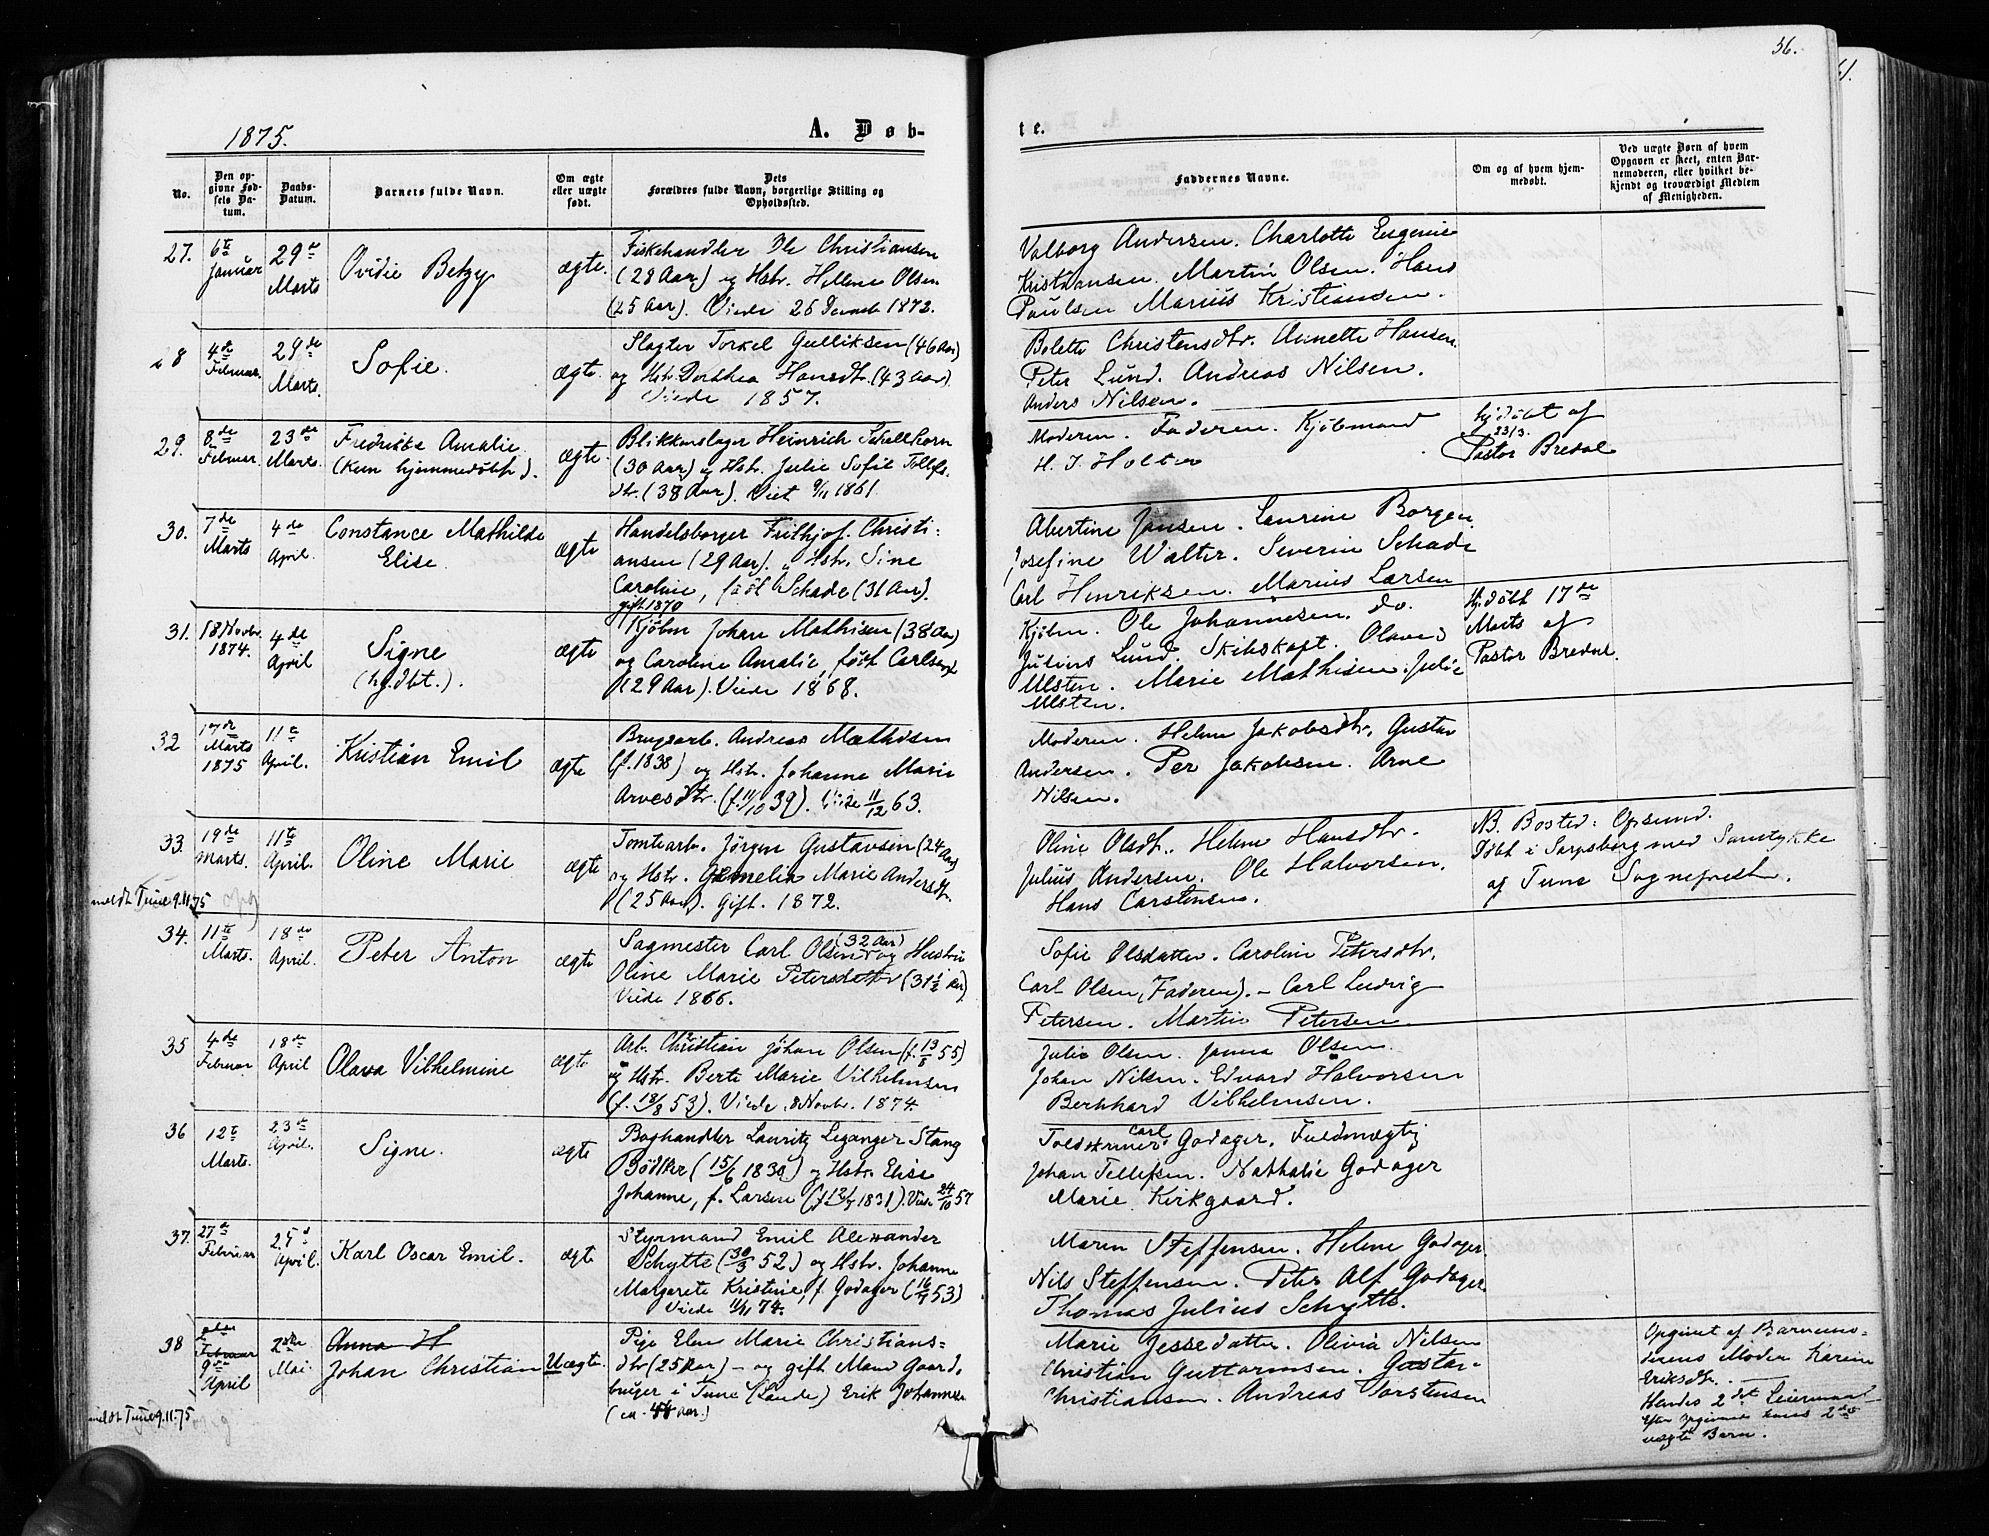 56.
61.
1875.
A. Døb-
te.
No.
Den op-
givne Fød-
sels Da-
tum.
Daabs-
Datum.
Barnets fulde Navn.
Om ægte
eller uægte
født.
Dets
Forældres fulde Navn, borgerlige Stilling og
Opholdssted.
Faddernes Navne.
Om og af hvem hjem-
medøbt.
Ved uægte Børn af hvem
Opgaven er skeet, enten Bar-
nemoderen, eller hvilket be-
kjendt og troværdigt Medlem
af Menigheden.
27.
6te
Januar
29de
Marts
Ovidie Betzy
ægte.
Fiskehandler Ole Christiansen
(28 Aar) og Hstr. Hellene Olsen
(25 Aar). Viede 26 Decemb 1872.
Valborg Andersen. Charlotte Eugenie
Kristiansen. Martin Olsen. Hans
Paulsen Marius Kristiansen.
28
4de
Februar.
29de
Marts.
Sofie.
ægte.
Slagter Torkel Gulliksen (46 Aar)
og Hstr. Dorthea Hansdtr. (43 Aar).
Viede 1857.
Bolette Christensdtr. Annette Hansen.
Peter Lund. Andreas Nilsen.
Anders Nilsen.
29.
8de
Februar.
23de
Marts.
Fredrikke Amalie.
(kun hjemmedøbt).
ægte.
Blikkenslager Heinrich Schellhorn
(30 Aar) og Hstr. Julie Sofie Tollfs
dtr. (38 Aar). Viet 9/11 1861.
Moderen. Faderen. Kjøbmand
H. J. Holter
hjdøbt af
23/3.
Pastor Bredal
30.
7de
Marts
4de
April.
Constance Mathilde
Elise.
ægte
Handelsborger Frithjof Christi-
ansen (29 Aar). og Hstr. Sine
Caroline, født Schade (31 Aar).
gift 1870
Abertine Jansen. Laurine Borgen
Josefine Walter. Severin Schade
Carl Henriksen. Marius Larsen
31.
18 Novbr.
1874.
4de
April
Signe
(hj.dbt.).
ægte
Kjølm Johan Mathisen (38 Aar)
og Caroline Amalie, født Carlsen
(29 Aar). Viede 1868.
Kjølm. Ole Johannesen. do.
Julius Lund. Olave
Ulsten. Marie Mathisen. Julie
Ulsten.
Hj.døbt 17de
Marts af
Pastor Bredal.
32
17de
Marts
1875
11te
April.
Kristian Emil
ægte
Brugsarb. Andreas Mathisen
(f. 1838) og Hstr. Johanne Marie
Arvesdtr. (f. 11/10 39). Viede 11/12 63.
Moderen. Helene Jakobsdtr, Gustav
Andersen. Per Jakobsen. Arne
Nilsen.
33.
19de
Marts.
11te
April.
Oline Marie
ægte
Tomtearb. Jörgen Gustavsen (24 Aar)
og Hstr. Marie Andersdtr.
(25 Aar). Gift. 1872.
Oline Olsdt. Helene Hansdtr.
Julius Andersen. Ole Halvorsen.
Hans Carstensen.
NB. Bosted: Opsund.
Døbt i Sarpsborg med Samtykke
af Tune Sognepræst.
meldt Tune 9.11.75
34.
11te
Marts.
18de
April.
Peter Anton
ægte
Sagmester Carl Olsen (32 Aar) og Hustru
Oline Marie Petersdatter (31 1/2 Aar)
Viede 1866.
Sofie Olsdatter. Caroline Petersdtr.
Carl Olsen, (Faderen). - Carl Ludvig
Petersen. Martin Petersen.
35
4de
Februar
18de
April
Olava Vilhelmine
ægte
Arb. Christian Johan Olsen (f. 13/8 55)
og Hstr. Berte Marie Vilhelmsen
(f. 18/8 53). Viede 8 Novbr. 1874.
Julie Olsen. Janna Olsen
Johan Nilsen. Edvard Halvorsen
Bernhard Vilhelmsen.
36
12te
Marts.
23de
April.
Signe.
ægte
Boghandler Lauritz Leganger Stang
Bödtker (15/6 1830) og Hstr. Elise
Johanne, f. Larsen (f. 12/7 1831). Vied. 24/10 57
Carl Godager. Fuldmægtig
Johan Tellefsen. Nathalie Godager
Marie Kirkgaard.
37.
27de
Februar
25d
April.
Karl Oscar Emil.
ægte
Styrmand Emil Alexander
Schytte (30/3 52) og Hstr. Johanne
Margarete Kristine, f. Godager (16/7 53)
Viede 11/11 74.
Maren Steffensen. Helene Godager
Nils Steffensen. Peter Alf Godager
Thomas Julius Schytte.
38
Februar
9de
April
2den
Mai
Anna H
Johan Christian
Uægte.
Pige Elen Marie Christians-
dtr (25 Aar) - og gift Mand Gaard-
bruger i Tune (Lande) Erik Johannesen
(ca. 44 Aar.)
Marie Jessedatter. Olivia Nilsen
Christian Guttormsen. Gustav
Christiansen. Andreas Torstensen
Opgivet af Barnemo-
derens Moder Karine
Eriksdtr.
Hendes 2det Leiermaal
Efter Opgivende hans 2det
uægte Barn.
meldt Tune 9.11.75